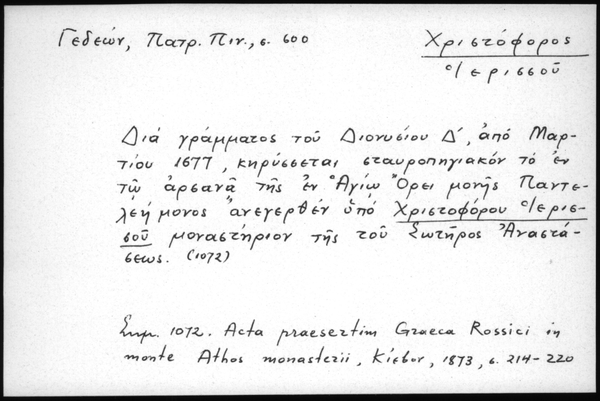 Γεδεών, Πατρ. Πιν., σ. 600
Χριστόφορος
Ἱερισσοῦ
Διά γράμματος τοῦ Διονυσίου Δ΄, ἀπό Μαρ-
τίου 1677, κηρύσσεται σταυροπηγιακόν τό ἐν
τῷ ἀρσανᾷ τῆς ἐν Ἁγίῳ Ὄρει μονῆς Παντε-
λεήμονος ἀνεγερθέν ὑπό Χριστοφόρου Ἱερισ-
σοῦ μοναστήριον τῆς τοῦ Σωτῆρος Ἀναστά-
σεως. (1072)
Σημ. 1072. Acta praesertim Graeca Rossici in
monte Athos monasterii, Κίεβον, 1873, σ. 214-220